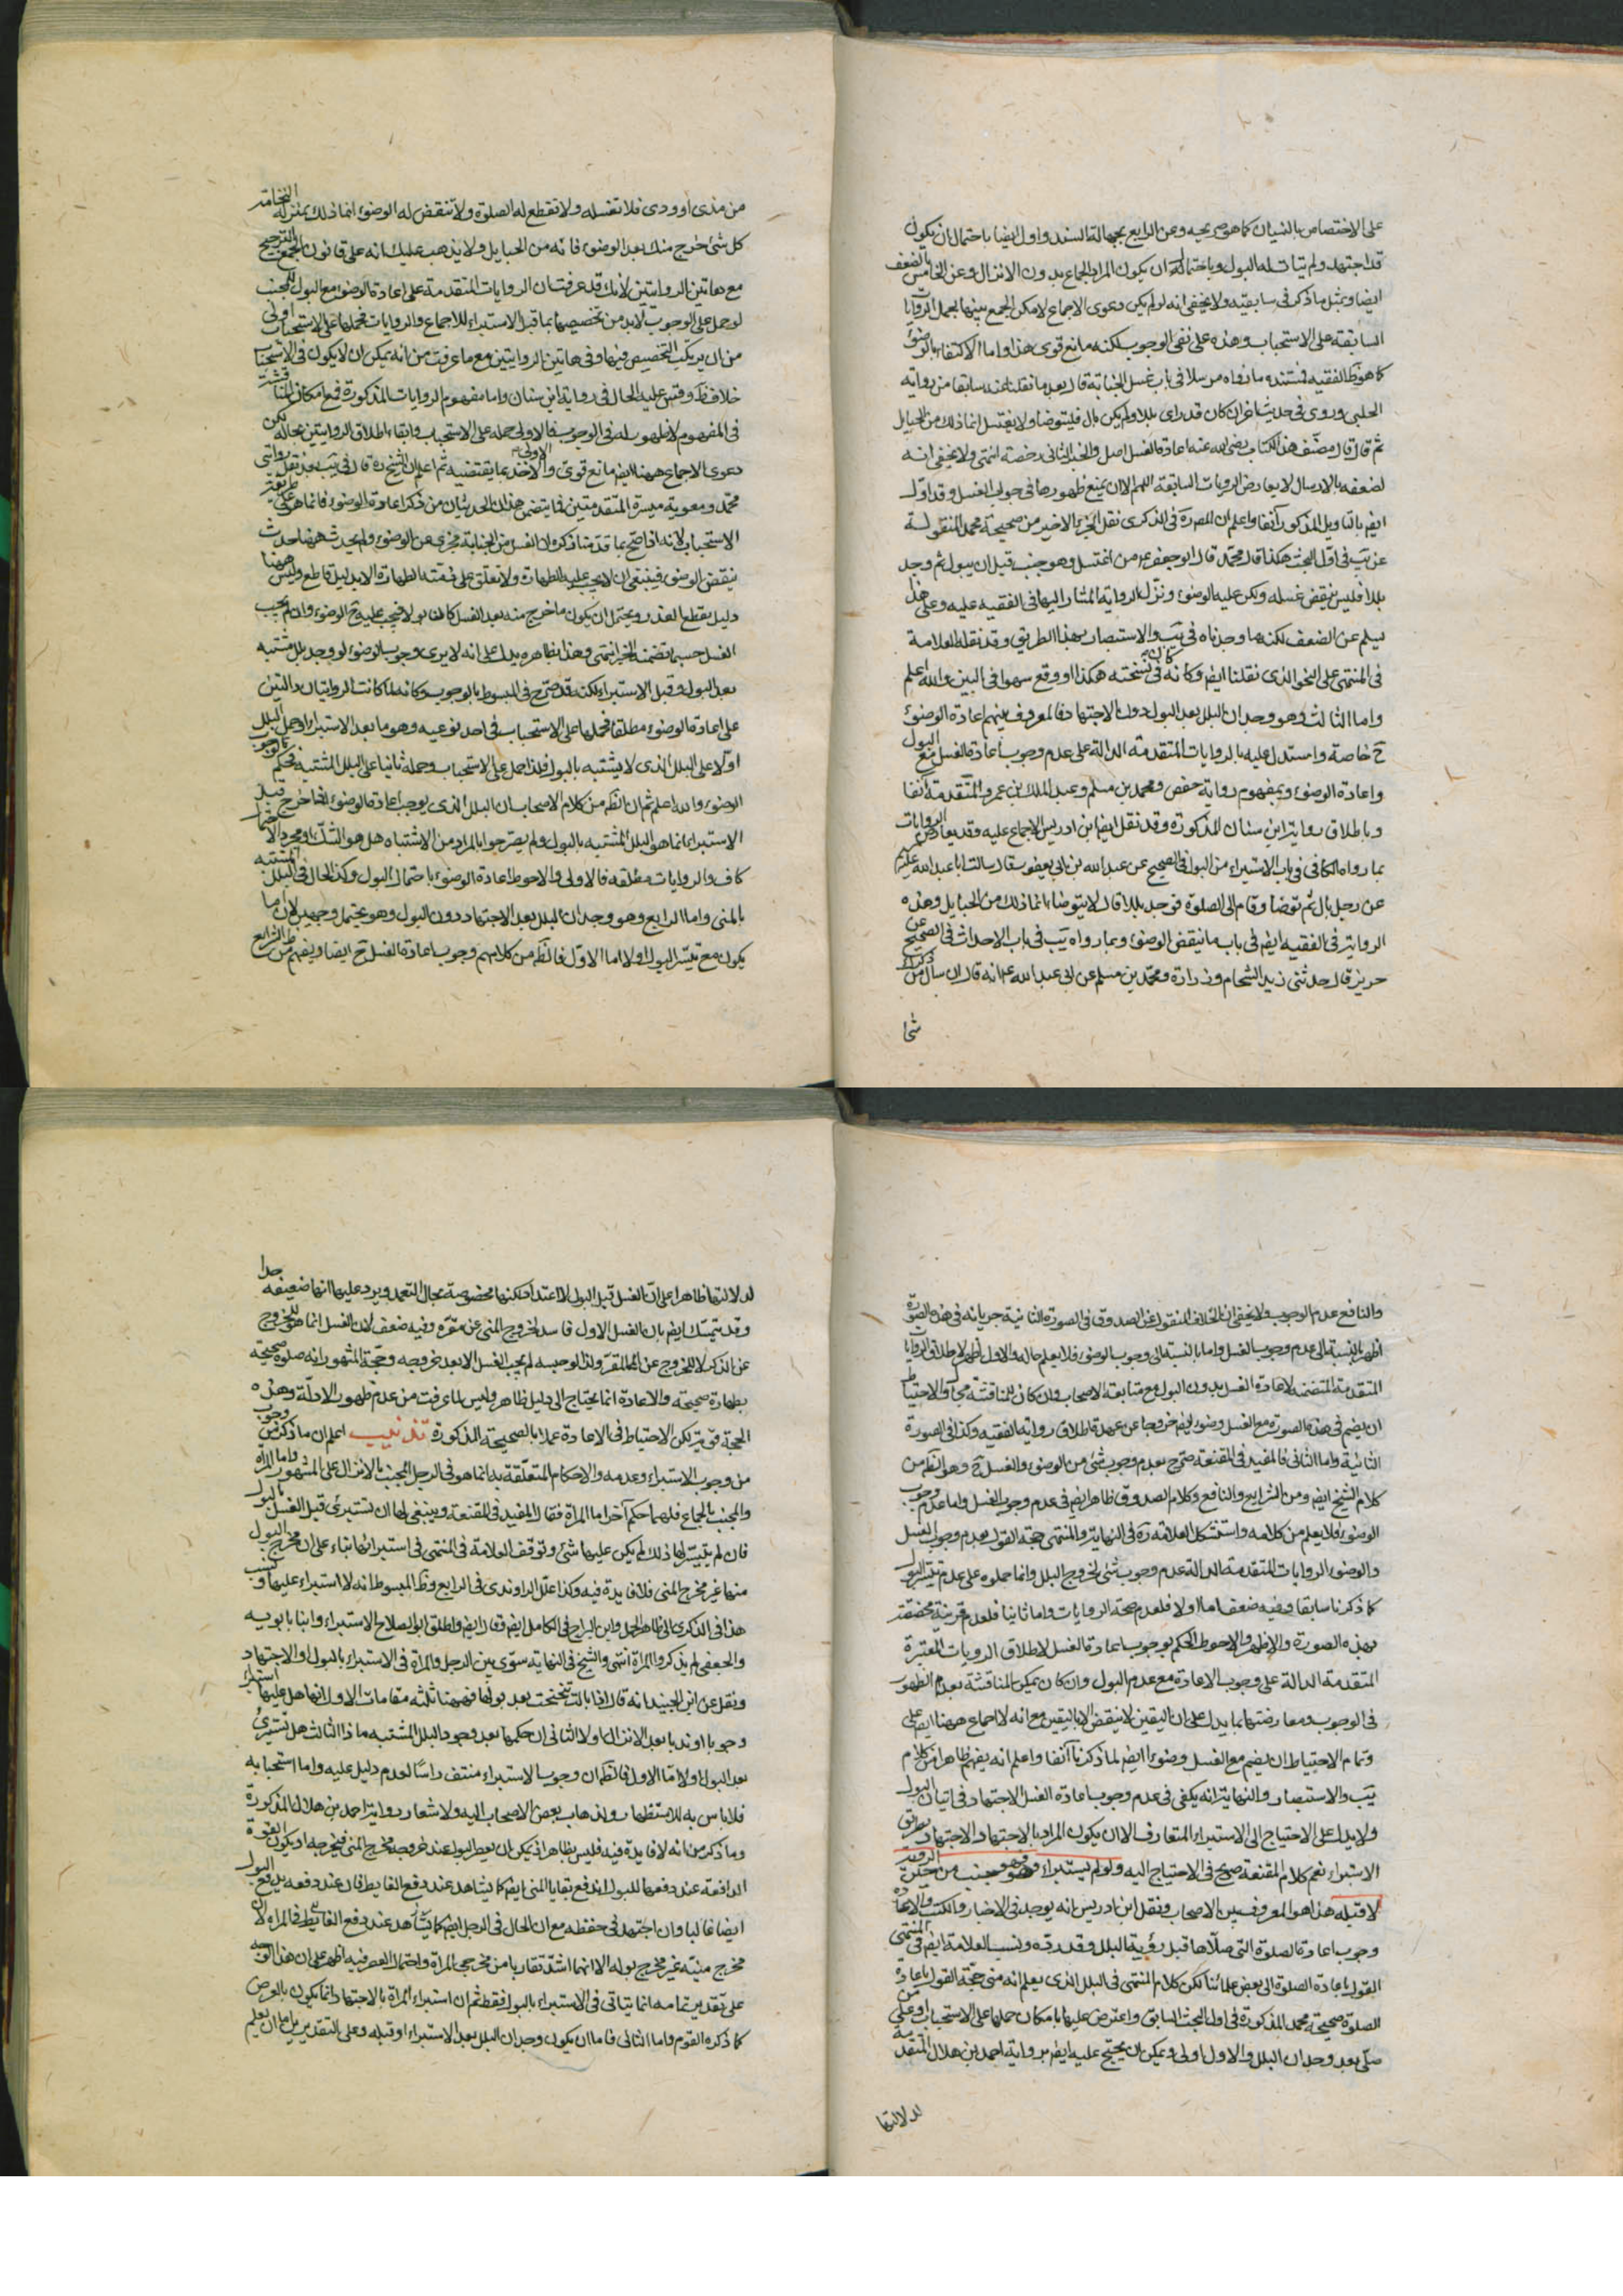 على الاختصاص بالنسيان كما هو صريحه وعن الرابع بجهالة السند واول ايضا باحتمال ان يكون
قد اجتهد ولم يتات له البول وباحتمال ان يكون المراد الجماع بدون الانزال وعن الخامس بالضعف
ايضا وبمثل ما ذكر في سابقيه ولا يخفى انه لو لم يكن دعوى الاجماع لامكن الجمع بينها بحمل الروايات
السابقة على الاستحباب وهذه على نفى الوجوب لكنه مانع قوى هذا واما الاكتفاء بالوضوء
كما هو ظ الفقيه فمستنده ما رواه مرسلا في باب غسل الجنابة قال بعد ما نقلنا عنه سابقا من رواية
الحلبي وروى في حديث اخر ان كان قد راى بللا ولم يكن بال فليتوضا ولا يغتسل انما ذلك من الحبايل
ثم قال قال مصنف هذا الكتاب رضى الله عنه اعادة الغسل اصل والخبر الثاني رخصة انتهى ولا يخفى انه
لضعفه بالارسال لا يعارض الروايات السابقة اللهم الا ان يمنع ظهورها في وجوب الغسل وقد اول
ايض بالتاويل المذكور آنفا واعلم ان المص ره في الذكرى نقل الجزء الاخير من صحيحة محمد المنقولة
عن يب في اول البحث هكذا قال محمد قال ابو جعفر ع من اغتسل وهو جنب قبل ان يبول ثم وجد
بللا فليس ينقض غسله ولكن عليه الوضوء ونزل الرواية المشار اليها في الفقيه عليه وعلى هذا
يسلم عن الضعف لكنه ما وجدناه في يب والاستبصار بهذا الطريق وقد نقله العلامة
في المنتهى على النحو الذى نقلنا ايض وكانه كان في نسخته هكذا او وقع سهوا في البين والله اعلم
واما الثالث وهو وجدان البلل بعد البول دون الاجتهاد فالمعروف بينهم اعادة الوضوء
ح خاصة واستدل عليه بالروايات المتقدمة الدالة على عدم وجوب اعادة الغسل مع البول
واعادة الوضوء وبمفهوم رواية حفص ومحمد بن مسلم وعبد الملك بن عمرو المتقدمة آنفا
وباطلاق رواية ابن سنان المذكورة وقد نقل ايض ابن ادريس الاجماع عليه وقد يعارض الروايات
بما رواه الكافي في باب الاستبراء من البول في الصحيح عن عبد الله بن ابي يعفور قال سالت ابا عبد الله عليه
عن رجل بال ثم توضا وقام الى الصلوة فوجد بللا قال لا يتوضا انما ذلك من الحبايل وهذه
الرواية في الفقيه ايض في باب ما ينقض الوضوء وبما رواه يب في باب الاحداث في الصحيح عن
حريز قال حدثنى زيد الشحام وزرارة ومحمد بن مسلم عن ابي عبد الله ع انه قال ان سال من ذكرك
شئ
من مذى او ودى فلا تغسله ولا تقطع له الصلوة ولا تنقض له الوضوء انما ذلك بمنزلة النخامة
كل شئ خرج منك بعد الوضوء فانه من الحبايل ولا يذهب عليك انه على قانون الجمع الترجيح
مع هاتين الروايتين لانك قد عرفت ان الروايات المتقدمة على اعادة الوضوء مع البول للمجنب
لو حمل على الوجوب لابد من تخصيصها بما قبل الاستبراء للاجماع والروايات فحملها على الاستحباب اولى
من ان يرتكب التخصيص فيها وفي هاتين الروايتين مع ما عرفت من انه يمكن ان لا يكون في الاستحباب
خلاف ظ وقس عليه الحال في رواية ابن سنان واما مفهوم الروايات المذكورة فمع امكان المناقشة
في المفهوم لا ظهور له في الوجوب فالاولى حمله على الاستحباب وابقاء اطلاق الروايتين بحاله لكن
دعوى الاجماع ههنا ايض مانع قوى والاولى الاخذ بما يقتضيه ثم اعلم ان الشيخ ره قال في يب بعد نقل روايتى
محمد ومعوية ميسرة المتقدمتين فما يتضمن هذان الحديثان من ذكر اعادة الوضوء فانما هو على طريق
الاستحباب لانه اذا صح بما قدمنا ذكره ان الغسل من الجنابة مجزى عن الوضوء ولم يحدث ههنا حدث
ينقض الوضوء فينبغى ان لا يجب عليه الطهارة ولا تعلق على ذمته الطهارة الا بدليل قاطع وليس ههنا
دليل يقطع العذر ويحتمل ان يكون ما خرج منه بعد الغسل كان بولا فيجب عليه ح الوضوء وان لم يجب
الغسل حسبما تضمنه الخبر انتهى وهذا بظاهره يدل على انه لا يرى وجوب الوضوء لو وجد بلل مشتبه
بعد البول وقبل الاستبراء لكنه قد صرح في المبسوط بالوجوب وكانه لما كانت الروايتان دالتين
على اعادة الوضوء مطلقا فحملها على الاستحباب في احد نوعيه وهو ما بعد الاستبراء او حمل البلل
اولا على البلل الذى لا يشتبه بالبول فلذا حمل على الاستحباب وحمله ثانيا على البلل المشتبه فحكم بوجوب
الوضوء والله اعلم ثم ان الظ من كلام الاصحاب ان البلل الذى يوجب اعادة الوضوء اذا خرج قبل
الاستبراء انما هو البلل المشتبه بالبول ولم يصرحوا بالمراد من الاشتباه هل هو الشك او مجرد الاحتمال
كاف والروايات مطلقة فالاولى والاحوط اعادة الوضوء باحتمال البول وكذا الحال في البلل المشتبه
بالمنى واما الرابع وهو وجدان البلل بعد الاجتهاد دون البول وهو يحتمل وجهين لانه اما
يكون مع تيسر البول او لا اما الاول فالظ من كلامهم وجوب اعادة الغسل ح ايضا ويفهم من ظ الشرايع
والنافع عدم الوجوب ولا يخفى ان الخلاف المنقول عن الصدوق في الصورة الثانية جريانه في هذه الصورة
اظهر بالنسبة الى عدم وجوب الغسل واما بالنسبة الى وجوب الوضوء فلا يعلم حاله والاول اظهر لاطلاق الروايات
المتقدمة المتضمنة لاعادة الغسل بدون البول مع متابعة الاصحاب وان كان للمناقشة مجال والاحتياط
ان يضم في هذه الصورة مع الغسل وضوء ايض خروجا عن عهدة اطلاق رواية الفقيه وكذا في الصورة
الثانية واما الثاني فالمفيد في المقنعة صرح بعدم وجوب شئ من الوضوء والغسل ح وهو الظ من
كلام الشيخ ايض ومن الشرايع والنافع وكلام الصدوق ظاهر ايض في عدم وجوب الغسل واما عدم وجوب
الوضوء فلا يعلم من كلامه واستشكل العلامة ره في النهاية والمنتهى حجة القول بعدم وجوب الغسل
والوضوء الروايات المتقدمة الدالة عدم وجوب شئ لخروج البلل وانما حملوه على عدم تيسر البول
كما ذكرنا سابقا وفيه ضعف اما اولا فلعدم صحة الروايات واما ثانيا فلعدم قرينة مخصصة
بهذه الصورة والاظهر والاحوط الحكم بوجوب اعادة الغسل لاطلاق الروايات المعتبرة
المتقدمة الدالة على وجوب الاعادة مع عدم البول وان كان يمكن المناقشة بعدم الظهور
في الوجوب ومعارضتها بما يدل على ان اليقين لا ينقض الا باليقين مع انه لا اجماع ههنا ايض على
وتمام الاحتياط ان يضم مع الغسل وضوءا ايض لما ذكرنا آنفا واعلم انه يفهم ظاهرا من كلام
يب والاستبصار والنهاية انه يكفى في عدم وجوب اعادة الغسل الاجتهاد في اتيان البول
ولا يدل على الاحتياج الى الاستبراء المتعارف الا ان يكون المراد بالاجتهاد الاجتهاد بطريق
الاستبراء نعم كلام المقنعة صريح في الاحتياج اليه ولو لم يستبراء فهو جنب من حين الرؤية
لا قبله هذا هو المعروف بين الاصحاب ونقل ابن ادريس انه يوجد في الاخبار والكتب والاعادة
وجوب اعادة الصلوة التى صلاها قبل رؤية البلل وقد رده ونسب العلامة ايض في المنتهى
القول باعادة الصلوة الى بعض علمائنا لكن كلام المنتهى في البلل الذى يعلم انه منى حجة القول باعادة
الصلوة صحيحة محمد المذكورة في اول البحث السابق واعترض عليها بامكان حملها على الاستحباب او على من
صلى بعد وجدان البلل والاول اولى ويمكن ان يحتج عليه ايض برواية احمد بن هلال المتقدمة
لدلالتها
لدلالتها ظاهرا على ان الغسل قبل البول لا اعتداد لكنها مخصوصة بحال التعمد ويرد عليها انها ضعيفة جدا
وقد يتمسك ايض بان الغسل الاول فاسد لخروج المنى عن مقره وفيه ضعف لان الغسل انما هو للخروج
عن الذكر لا للخروج عن المقر ولذا لو حبسه لم يجب الغسل الا بعد خروجه وحجة المشهور انه صلوة صحيحة
بطهارة صحيحة والاعادة انما يحتاج الى دليل ظاهر وليس لما عرفت من عدم ظهور الادلة وهذه
الحجة قوية لكن الاحتياط في الاعادة عملا بالصحيحة المذكورة تذنيب اعلم ان ما ذكر من وجوب
من وجوب الاستبراء وعدمه والاحكام المتعلقة به انما هو في الرجل المجنب بالانزال على المشهور واما المراة
والمجنب بالجماع فلهما حكم آخر اما المراة فقال المفيد في المقنعة وينبغى لها ان تستبرئ قبل الغسل بالبول
فان لم يتيسر لها ذلك لم يكن عليها شئ وتوقف العلامة في المنتهى في استبرائها بناء على ان مخرج البول
منها غير مخرج المنى فلا فايدة فيه وكذا علل الراوندى في الرابع وظ المبسوط انه لا استبراء عليها ونسب
هذا في الذكرى الى ظاهر الجمل وابن البراج في الكامل ايض وقال ايض واطلق ابو الصلاح الاستبراء وابنا بابويه
والجعفى لم يذكروا المراة انتهى والشيخ في النهاية سوى بين الرجل والمراة في الاستبراء بالبول او الاجتهاد
ونقل عن ابن الجنيد انه قال اذا بالت تنحنحت بعد بولها فههنا ثلثة مقامات الاول انها هل عليها استبراء
وجوبا او ندبا بعد الانزال او لا الثاني ان حكمها بعد وجود البلل المشتبه ماذا الثالث هل تستبرئ
بعد البول او لا اما الاول فالظ ان وجوب الاستبراء منتف راسا لعدم دليل عليه واما استحبابه
فلا باس به للاستظهار ولذهاب بعض الاصحاب اليه ولاشعار رواية احمد بن هلال المذكورة
وما ذكر من انه لا فايدة فيه فليس بظاهر اذ يمكن ان يعصر البول عند خروجه مخرج المنى فيخرجه او يكون القوة
الدافعة عند دفعها للبول اندفع بقايا المنى ايض كما يشاهد عند دفع الغايط فان عند دفعه يدفع البول
ايضا غالبا وان اجتهد في حفظه مع ان الحال في الرجل ايض كما يشاهد عند دفع الغايط فالمراة لان
مخرج منيه غير مخرج بوله الا انهما اشد تقاربا من مخرجى المراة واحتمال العصر فيه اظهر على ان هذا الوجه
على تقدير تمامه انما يتاتى في الاستبراء بالبول فقط ثم ان استبراء المراة بالاجتهاد انما يكون بالعرض
كما ذكره القوم واما الثاني فاما ان يكون وجدان البلل بعد الاستبراء او قبله وعلى التقديرين اما ان يعلم